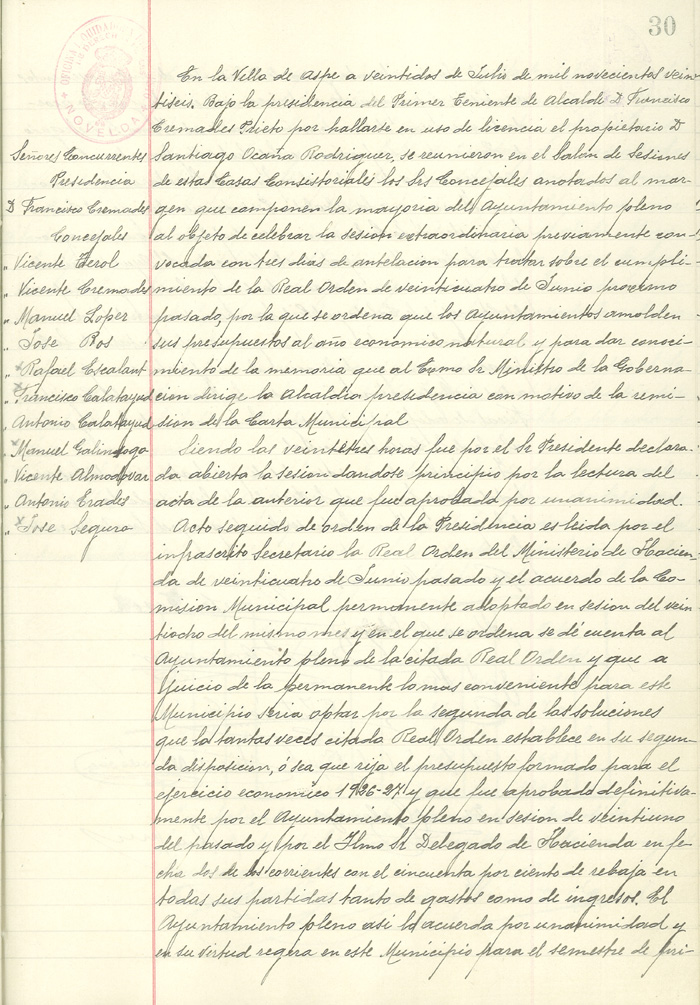 30
OFICINA LIQUIDADORA
NOVELDA
Señores Concurrentes
Presidencia
D Francisco Cremades
Concejales
" Vicente Terol
" Vicente Cremades
" Manuel Loper
" Jose Ros
" Rafael Escalant
" Francisco Calatayud
" Antonio Calatayud
" Manuel Galindo
" Vicente Almodovar
" Antonio Erades
" Jose Segura
En la Villa de Aspe a veintidos de Julio de mil novecientos vein
tiseis. Bajo la presidencia del Primer Teniente de Alcalde D Francisco
Cremades Prieto por hallarse en uso de licencia el propietario D
Santiago Ocaña Rodriguer, se reunieron en el Salon de Sesiones
de estas Casas Consistoriales los Srs Concejales anotados al mar-
gen que componen la mayoria del Ayuntamiento pleno
al objeto de celebrar la sesion extraordinaria previamente con-
vocada con tres dias de antelacion para tratar sobre el cumpli-
miento de la Real Orden de veinticuatro de Junio proximo
pasado, por la que se ordena que los Ayuntamientos amolden
sus presupuestos al año economico natural y para dar conoci-
miento de la memoria que al Excmo Sr Ministro de la Goberna-
cion dirige la Alcaldia presidencia con motivo de la remi-
sion de la Carta Municipal
Siendo las veintitres horas fue por el Sr Presidente declara-
da abierta la sesion dandose principio por la lectura del
acta de la anterior que fue aprobada por unanimidad.
Acto seguido de orden de la Presidencia es leida por el
infrascrito Secretario la Real Orden del Ministerio de Hacien-
da de veinticuatro de Junio pasado y el acuerdo de la Co-
mision Municipal permanente adoptado en sesion del vein
tiocho del mismo mes y en el que se ordena se dé cuenta al
Ayuntamiento pleno de la citada Real Orden y que a
juicio de la permanente lo mas conveniente para este
Municipio seria optar por la segunda de las soluciones
que la tantas veces citada Real Orden establece en su segun-
da disposicion, ó sea que rija el presupuesto formado para el
ejercicio economico 1926-27 y que fue aprobado definitiva-
mente por el Ayuntamiento pleno en sesion de veintiuno
del pasado y por el Ilmo Sr Delegado de Hacienda en fe-
cha dos de los corrientes con el cincuenta por ciento de rebaja en
todas sus partidas tanto de gastos como de ingresos. El
Ayuntamiento pleno asi lo acuerda por unanimidad y
en su virtud regira en este Municipio para el semestre de pri-